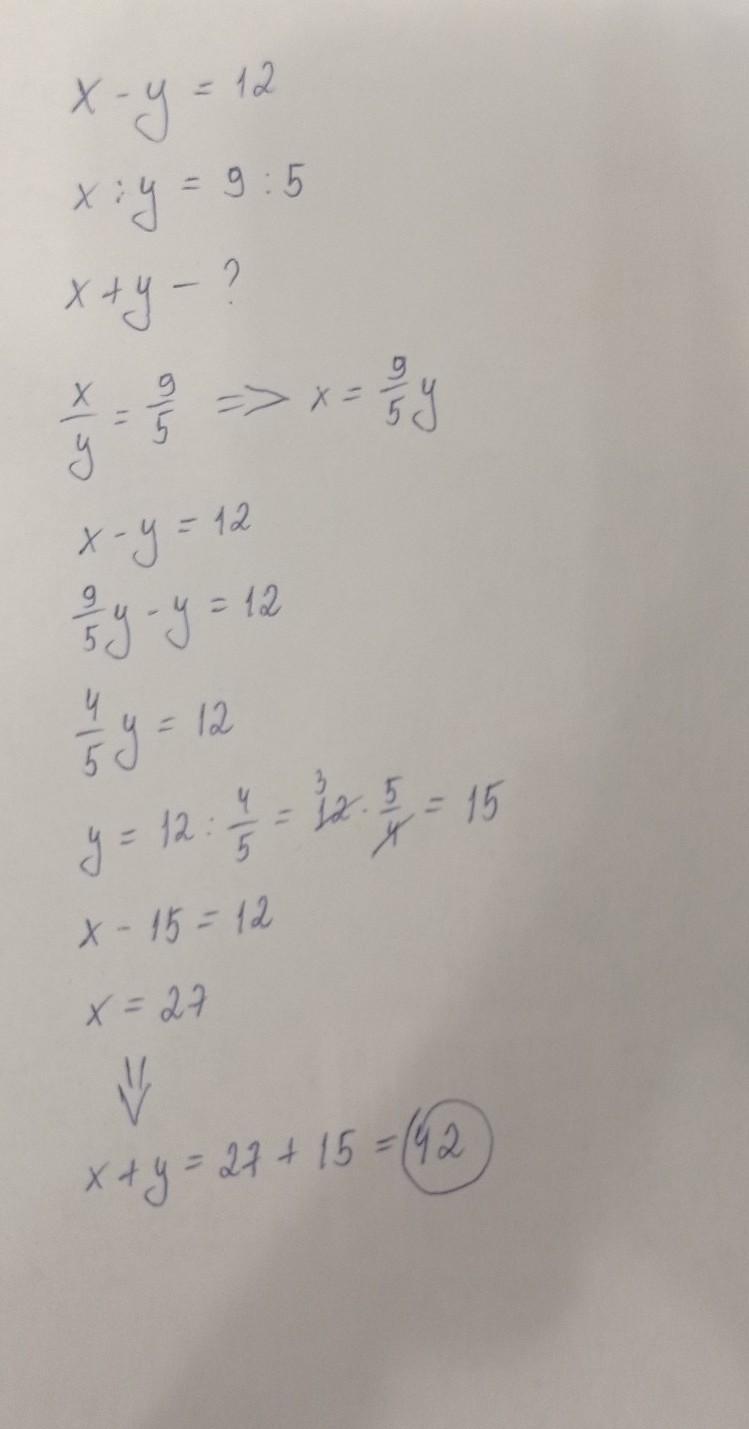 x - y = 12
x : y = 9 : 5
x + y - ?
x/y = 9/5 => x = 9/5 y
x - y = 12
9/5 y - y = 12
4/5 y = 12
y = 12 : 4/5 = 12 3 · 5/4 = 15
x - 15 = 12
x = 27
⇓
x + y = 27 + 15 = 42